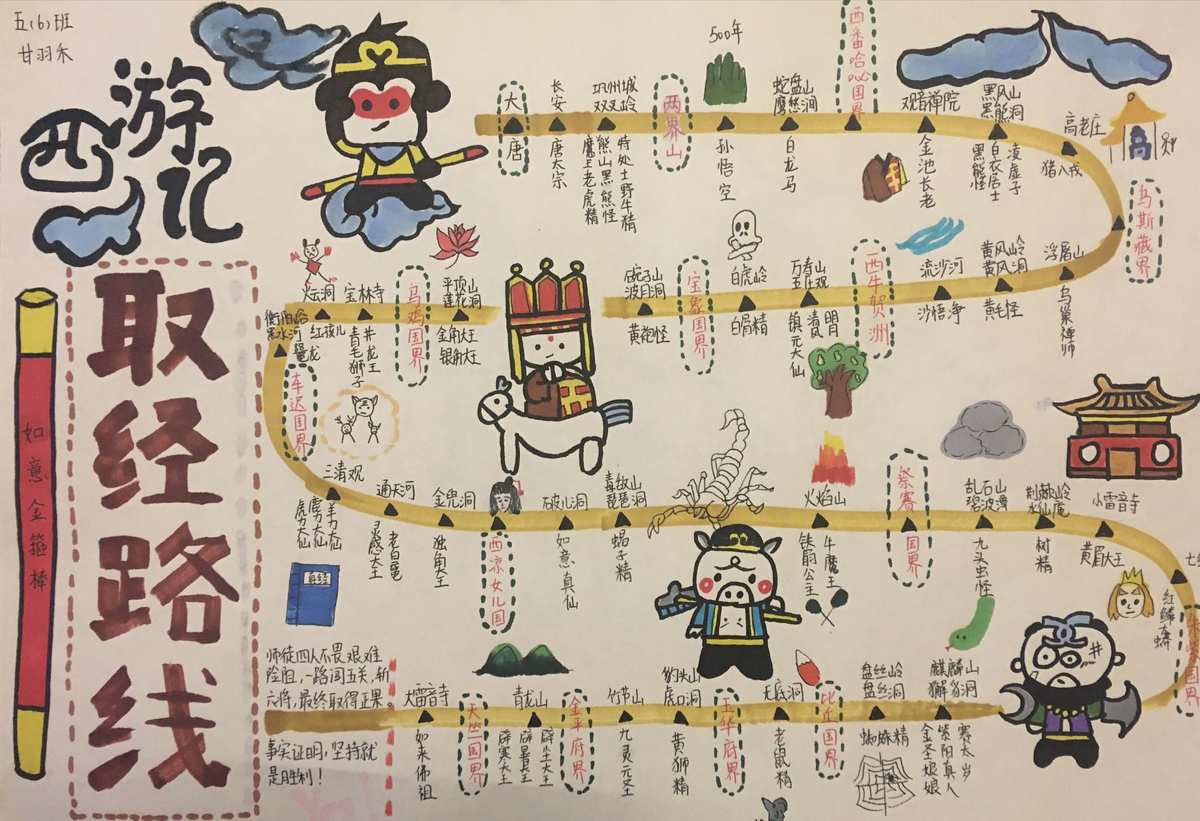 五(6)班
甘羽禾
西游记
取经路线
如意金箍棒
大唐
长安
唐太宗
巩州城
双叉岭
魔王老虎精
熊山黑熊怪
特处土野牛精
两界山
500年
孙悟空
蛇盘山
鹰愁涧
白龙马
西番哈咇国界
观音禅院
金池长老
黑风山
黑熊洞
黑熊怪
白衣居士
凌虚子
高老庄
猪八戒
乌斯藏界
浮屠山
乌巢禅师
黄风岭
黄风洞
黄毛怪
流沙河
沙悟净
西牛贺洲
万寿山
五庄观
镇元大仙
清风
明月
白虎岭
白骨精
宝象国界
碗子山
波月洞
黄袍怪
平顶山
莲花洞
金角大王
银角大王
乌鸡国界
宝林寺
井龙王
青毛狮子
火云洞
红孩儿
黑水河
鼍龙
车迟国界
三清观
虎力大仙
鹿力大仙
羊力大仙
通天河
灵感大王
老白鼋
金兜洞
独角大王
西凉女儿国
破儿洞
如意真仙
毒敌山
琵琶洞
蝎子精
火焰山
铁扇公主
牛魔王
祭赛国界
乱石山
碧波潭
九头虫怪
荆棘岭
木仙庵
树精
小雷音寺
黄眉大王
红鳞大蟒
朱紫国界
麒麟山
獬豸洞
金圣娘娘
紫阳真人
赛太岁
盘丝岭
盘丝洞
蜘蛛精
比丘国界
无底洞
老鼠精
玉华府界
豹头山
虎口洞
黄狮精
竹节山
九灵元圣
金平府界
青龙山
辟寒大王
辟暑大王
辟尘大王
天竺国界
大雷音寺
如来佛祖
真经
师徒四人不畏艰难
险阻,一路闯五关,斩
六将,最终取得正果
事实证明,坚持就
是胜利!